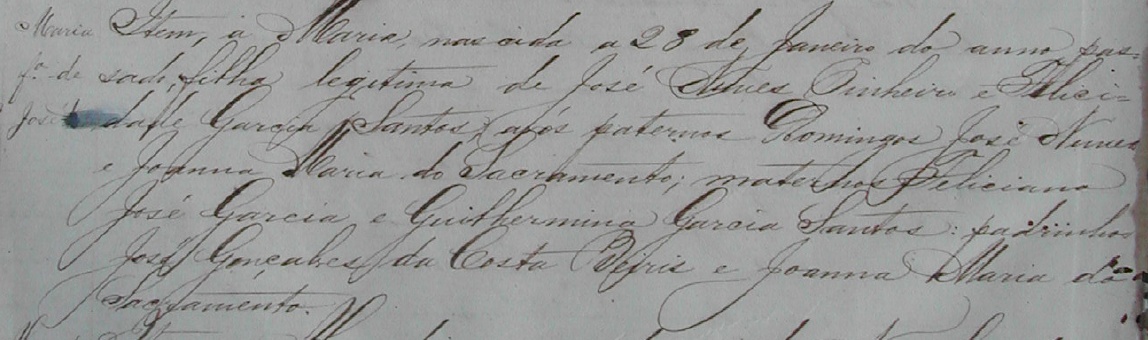 Maria Item, a Maria, nascida a 28 de Janeiro do anno pas-
fª de sado, filha legitima de José Nunes Pinheiro e Felici-
José dade Garcia Santos, avós paternos Domingos José Nunes
e Joanna Maria do Sacramento; maternos Feliciano
José Garcia e Guilhermina Garcia Santos: padrinhos
José Gonçalves da Costa e Joanna Maria do
Sacramento.